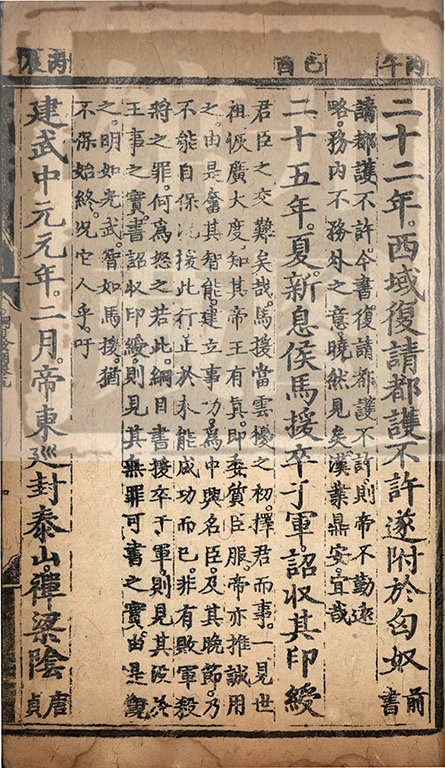 丙午
己酉
丙辰
二十二年。西域復請都護不許遂附於匈奴
前書
請都護不許。今書復請都護不許。則帝不勤遠
略。務內不務外之意曉然見矣。漢業鼎安。宜哉
二十五年。夏。新息侯馬援卒于軍。詔収其印綬
君臣之交。難矣哉。馬援當雲擾之初。擇君而事。一見世
祖恢廣大度。知其帝王有真。即委質臣服。帝亦推誠用
之。由是奮其智能。建立事功。為中興名臣。及其晚節。乃
不能自保。援此行止於未能成功而已。非有敗軍殺
將之罪。何為怒之若此。綱目書援卒于軍。則見其沒
王事之實。書詔収印綬。則見其無罪可書之實。由是觀
之。明如光武。智如馬援。猶
不保始終。况它人乎。吁
建武中元元年。二月。帝東廵封泰山。禪梁陰
唐貞